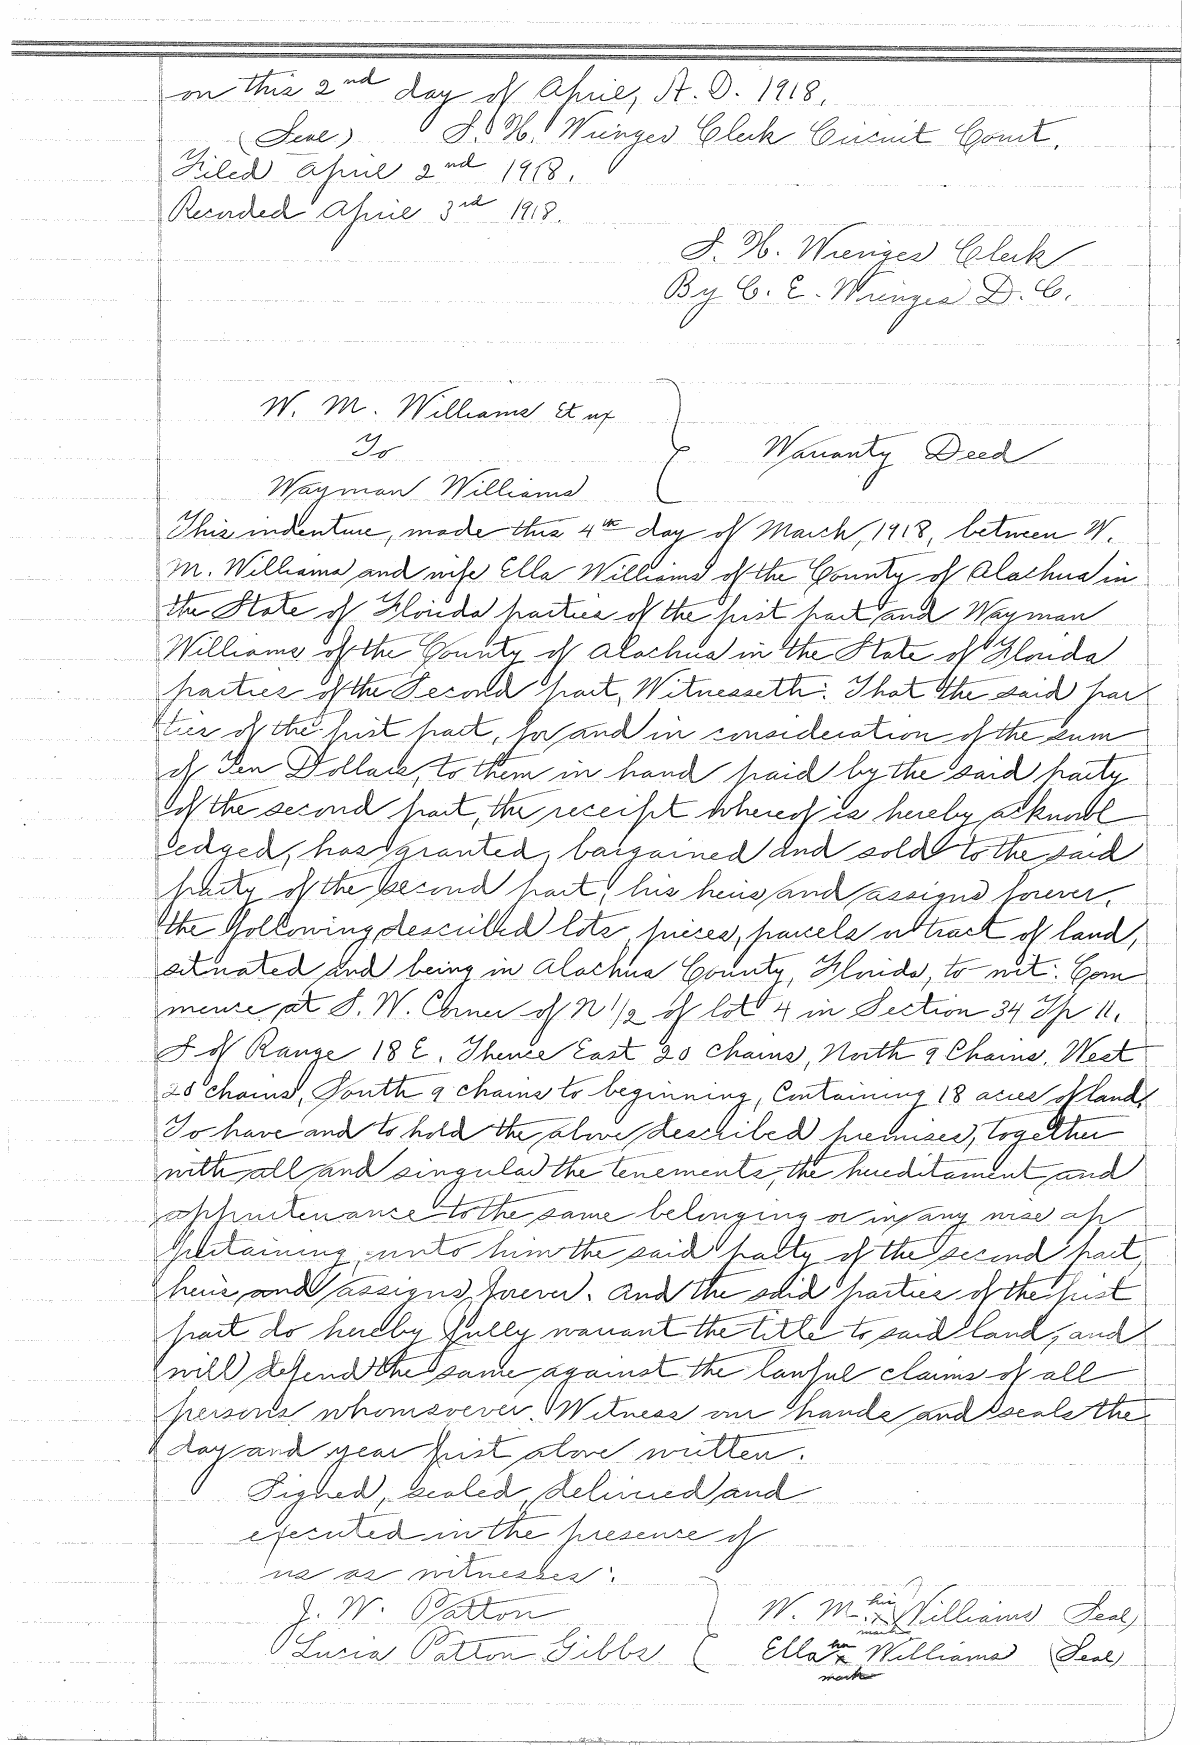 on this 2nd day of April, A. D. 1918.
(Seal) S. H. Wienges Clerk Circuit Court.
Filed April 2nd 1918.
Recorded April 3rd 1918.
S. H. Wienges Clerk
By C. E. Wienges D. C.
W. M. Williams Et ux
To
Warranty Deed
Wayman Williams
This indenture, made this 4th day of March, 1918, between W.
M. Williams and wife Ella Williams of the County of Alachua in
the State of Florida parties of the first part and Wayman
Williams of the County of Alachua in the State of Florida
parties of the Second part, Witnesseth: That the said par
ties of the first part, for and in consideration of the sum
of Ten Dollars, to them in hand paid by the said party
of the second part, the receipt whereof is hereby acknowl
edged, has granted, bargained and sold to the said
party of the second part, his heirs and assigns forever,
the following described lots, pieces, parcels or tract of land,
situated and being in Alachua County, Florida, to wit: Com
mence at S. W. Corner of N 1/2 of lot 4 in Section 34 Tp 11.
S of Range 18 E. Thence East 20 chains, North 9 Chains, West
20 chains, South 9 chains to beginning, Containing 18 acres of land.
To have and to hold the above described premises, together
with all and singular the tenements, the hereditament and
appurtenance to the same belonging or in any wise ap
pertaining, unto him the said party of the second part
heirs and assigns forever. And the said parties of the first
part do hereby fully warrant the title to said land, and
will defend the same against the lawful claims of all
persons whomsoever. Witness our hands and seals the
day and year first above written.
Signed, sealed, delivered and
executed in the presence of
us as witnesses:
J. W. Patton W. M. his x mark Williams Seal)
Lucia Patton Gibbs Ella her x mark Williams (Seal)